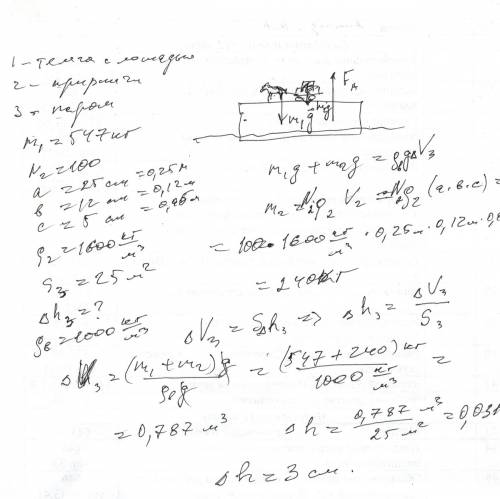 1 - телга с лошадью
2 - кирпичи
3 - паром
m₁ = 547 кг
N₂ = 100
a = 25 см = 0,25 м
в = 12 см = 0,12 м
c = 5 см = 0,05 м
ρ₂ = 1600 кг/м³
S₃ = 25 м²
Δh₃ = ?
ρв = 1000 кг/м³
F_A
m₁g
mg
m₁g + m₂g = ρв g ΔV₃
m₂ = N₂ρ₂ V₂ = N₂ρ₂ (a.в.c) =
= 100 · 1600 кг/м³ · 0,25 м · 0,12 м · 0,0
= 240 кг
ΔV₃ = S₃Δh₃ => Δh₃ = ΔV₃/S₃
ΔV₃ = (m₁ + m₂)g/ρвg = (547 + 240) кг/1000 кг/м³ =
= 0,787 м³
Δh = 0,787 м³/25 м² = 0,031
Δh = 3 см.